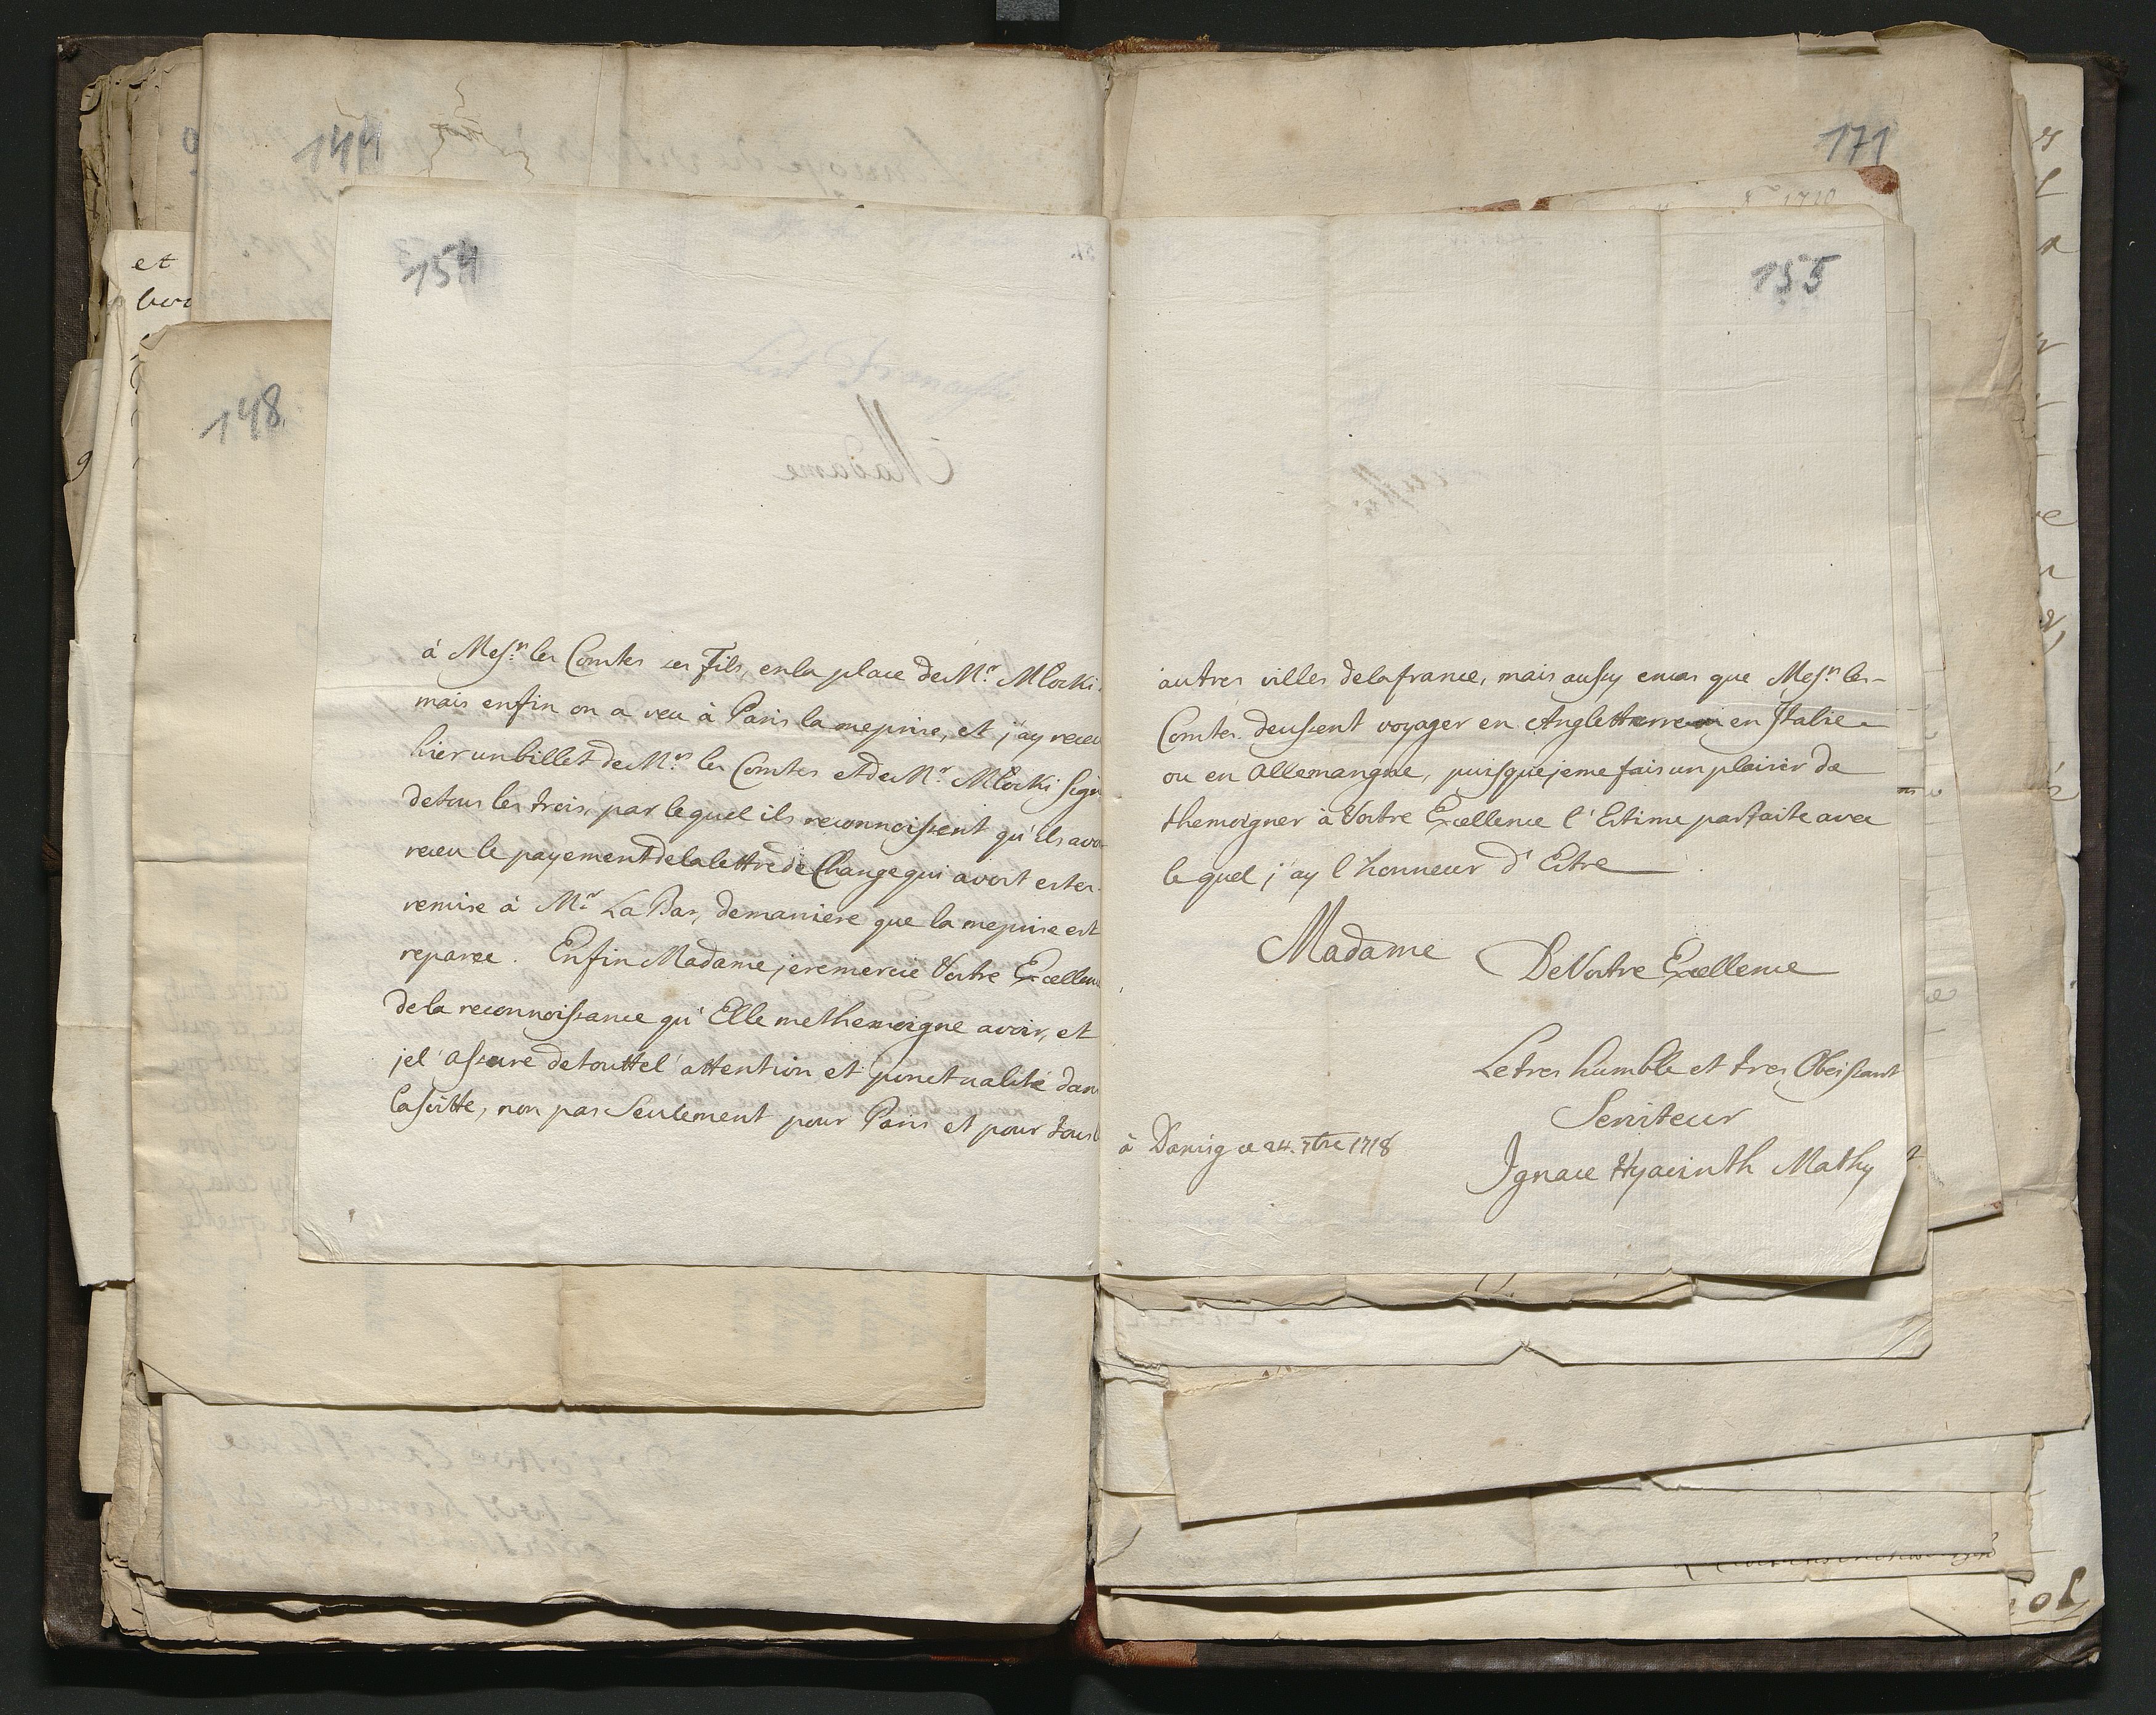 144
154
148
et
à Mesrs les Comtes ses Fils, en la place de Mr. Mlocki
mais enfin on a veu à Paris la meprise, et j'ay receu
hier un billet de Mrs les Comtes et de Mr. Mlocki sign
de tous les trois, par lequel ils reconnoissent qu'ils avo
receu le payement de la lettre de Change qui avoit estes
remise à Mr La Bar, de maniere que la meprise est
reparee. Enfin Madame, je remercie Vostre Excellen
de la reconnoissance qu'Elle me themoigne avoir, et
je l'assure de toutte l'attention et punctualité dan
la suitte, non pas Seulement pour Paris et pour tous l
171
1710
155
autres villes de la france, mais aussy encas que Mesrs les
Comtes deussent voyager en Angletterre en Italie
ou en Allemangne, puisque je me fais un plaisir de
themoigner à Vostre Excellence l'Estime parfaite avec
le quel j'ay l'honneur d'Estre
Madame De Vostre Excellence
Le tres humble et tres Obeissant
Serviteur
à Danzig ce 24. 7bre 1718
Ignace Hyacinth Mathy